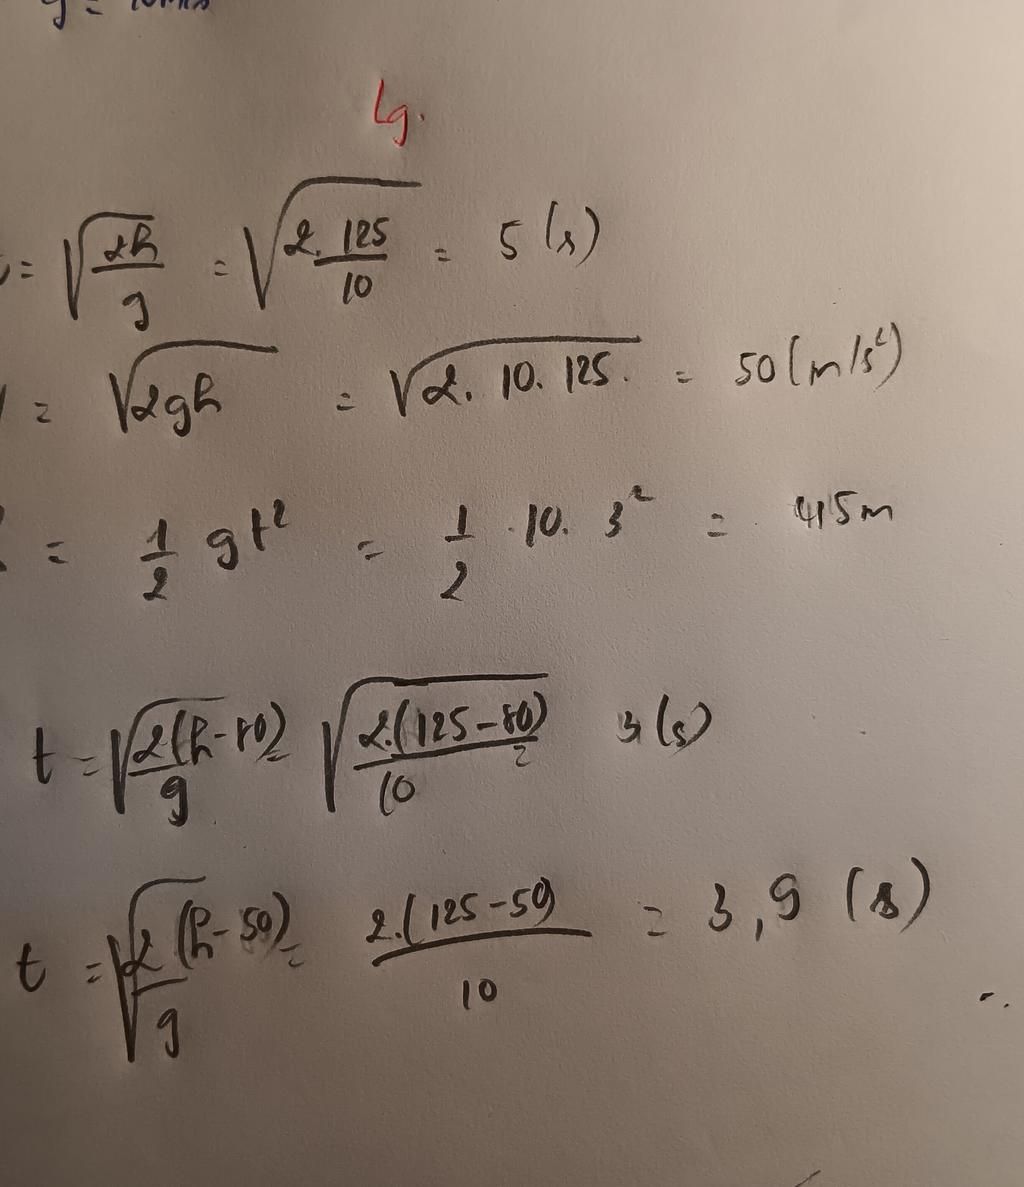 g = 10m/s
Lg.
= √(2h/g) = √(2.125/10) = 5 (s)
= √2gh = √2. 10. 125. = 50 (m/s²)
= 1/2 gt² = 1/2 . 10. 3² = 45m
t = √(2(h-80)/g) = √(2.(125-80)/10) = 3 (s)
t = √(2(h-50)/g) = 2.(125-50)/10 = 3,9 (s)